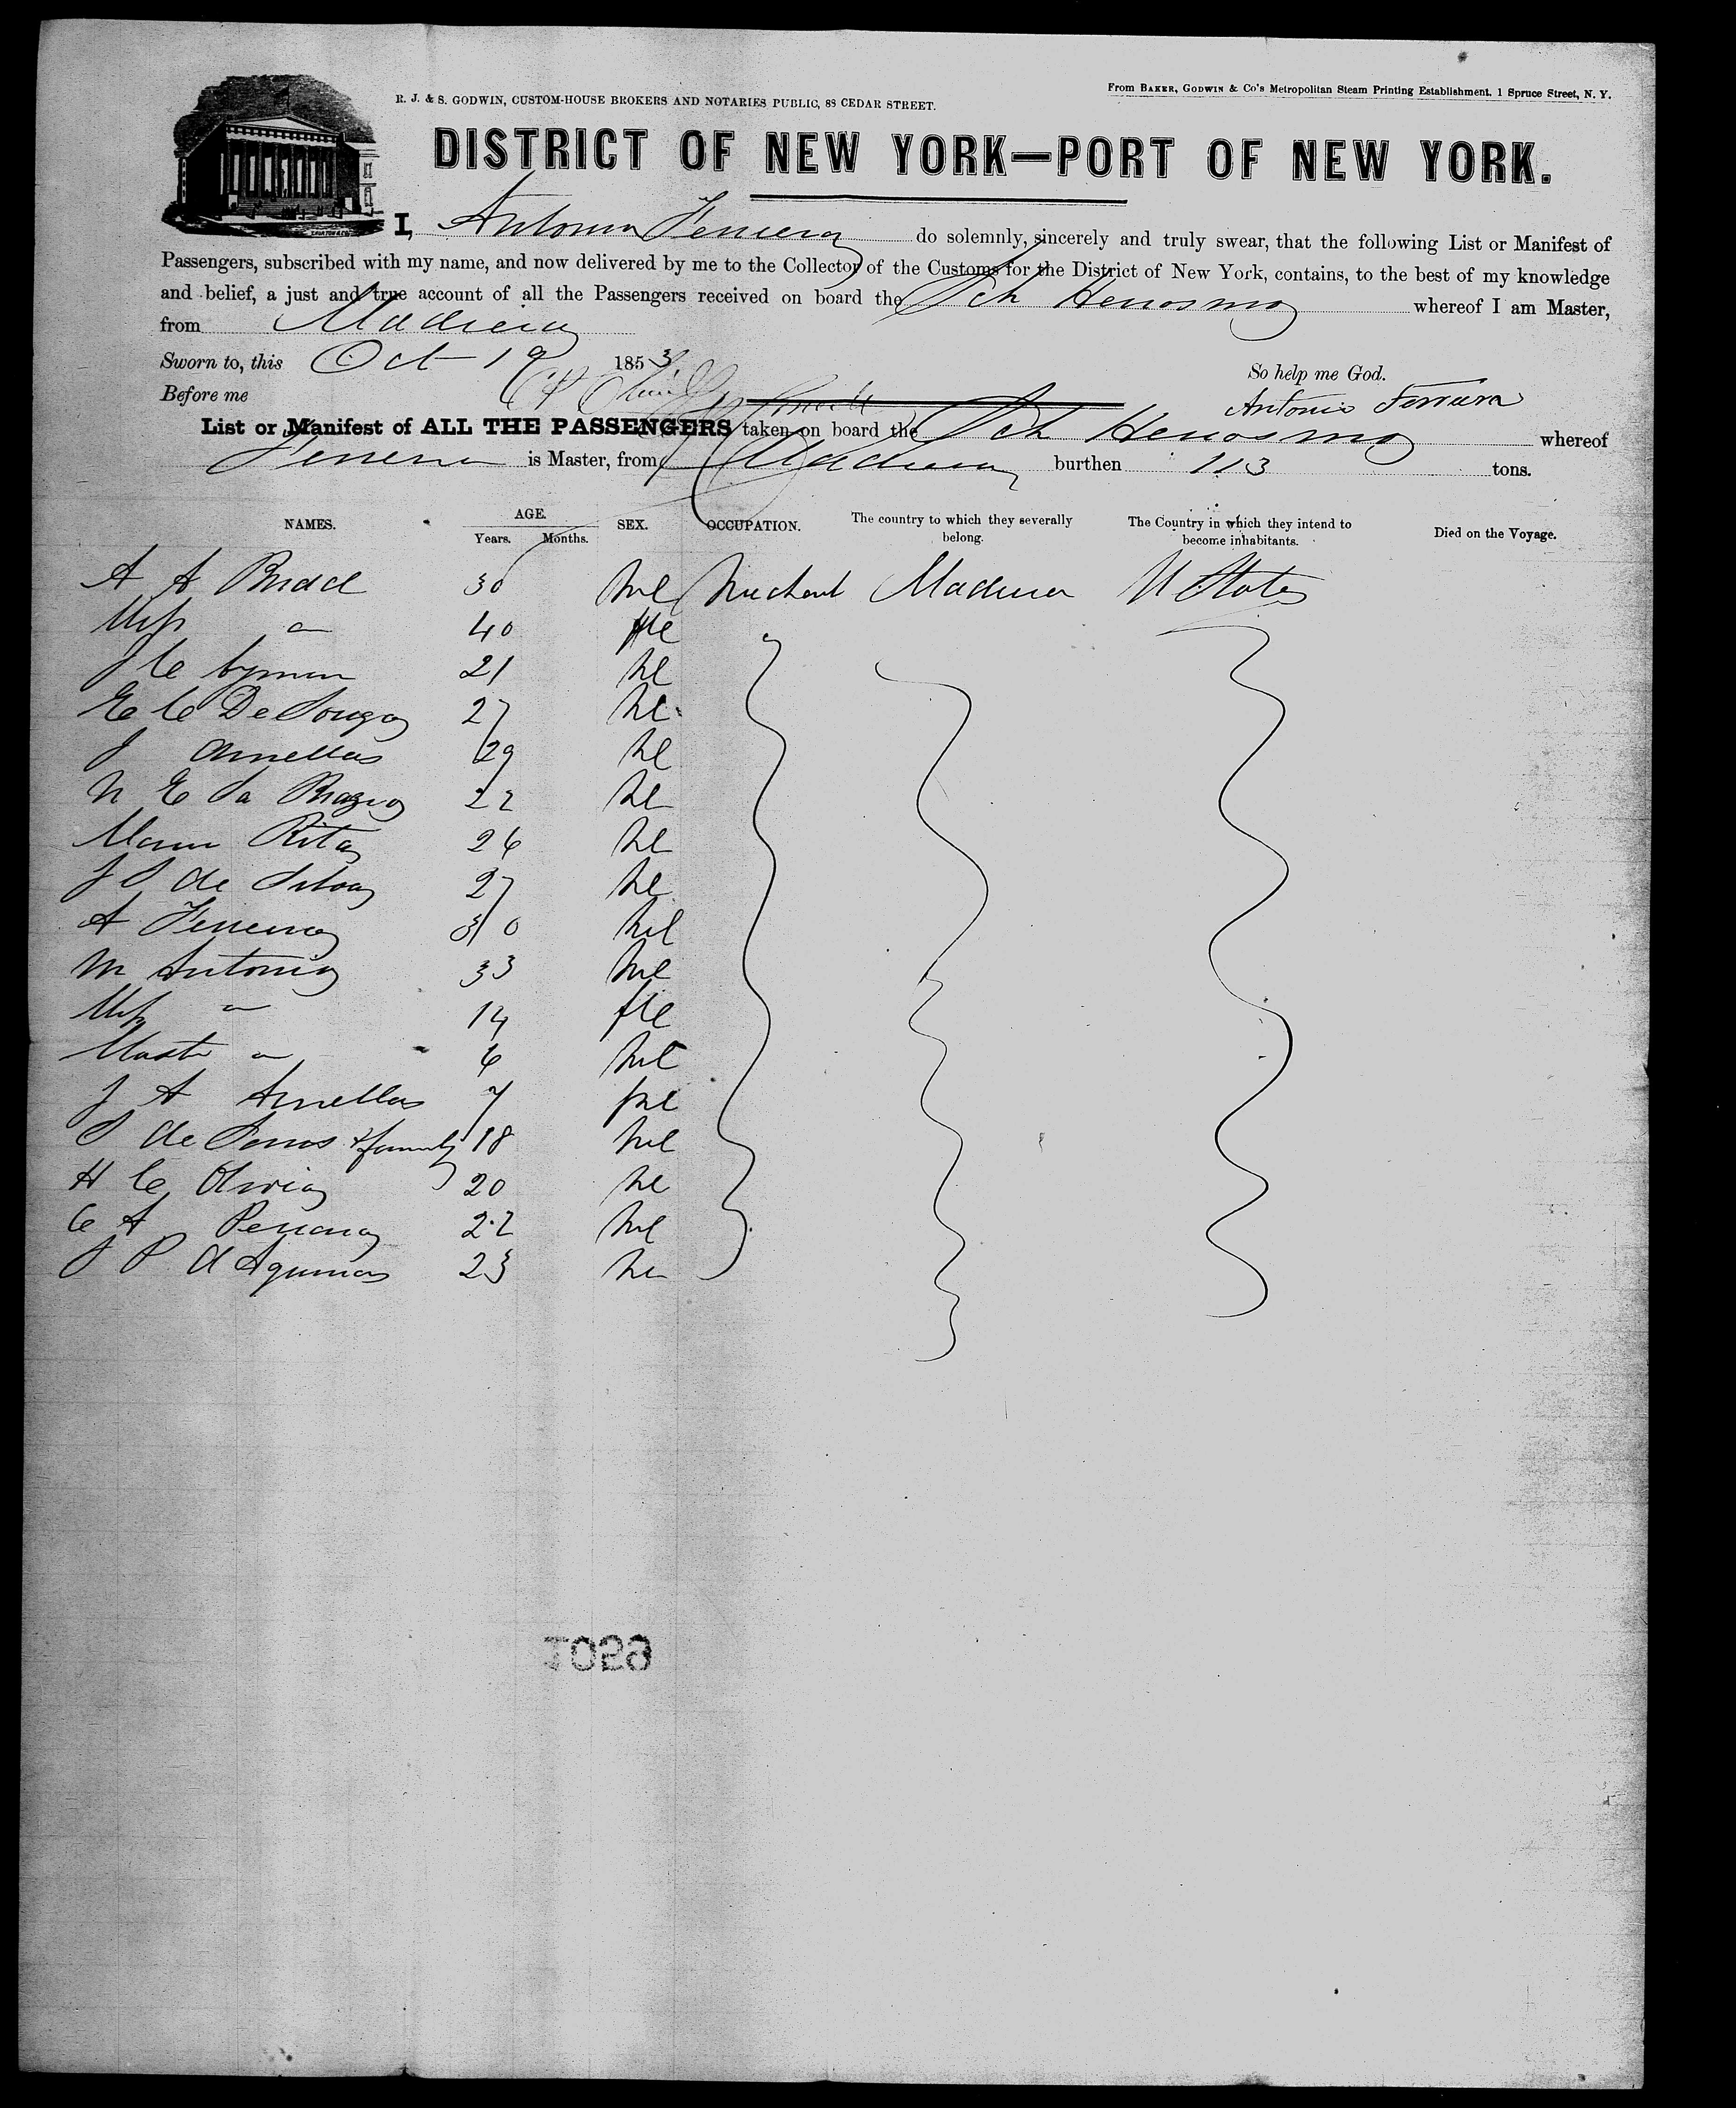 R. J. & S. GODWIN, CUSTOM-HOUSE BROKERS AND NOTARIES PUBLIC, 88 CEDAR STREET.
From BAKER, GODWIN & Co's Metropolitan Steam Printing Establishment, 1 Spruce Street, N. Y.
DISTRICT OF NEW YORK—PORT OF NEW YORK.
I, Antonio Ferreira do solemnly, sincerely and truly swear, that the following List or Manifest of
Passengers, subscribed with my name, and now delivered by me to the Collector of the Customs for the District of New York, contains, to the best of my knowledge
and belief, a just and true account of all the Passengers received on board the Sch Hermosma whereof I am Master,
from Madeira
Sworn to, this Oct 19 1853
So help me God.
Before me
Antonio Ferreira
List or Manifest of ALL THE PASSENGERS taken on board the Sch Hermosma whereof
Ferreira is Master, from Madeira burthen 113 tons.
NAMES. AGE. SEX. OCCUPATION. The country to which they severally belong. The Country in which they intend to become inhabitants. Died on the Voyage.
Years. Months.
A A 30 ml Merchant Madeira U States
40 fle
J C 21 ml
E C De Souza 27 ml
J Ornellas 29 ml
22 ml
Maria Rita 26 ml
J S de Silva 27 ml
A Ferreira 30 ml
M Antonio 33 ml
14 fle
Mast " 6 ml
J A Ornellas 7 ml
S de & family 18 ml
H C 20 ml
C A 22 ml
J P 23 ml